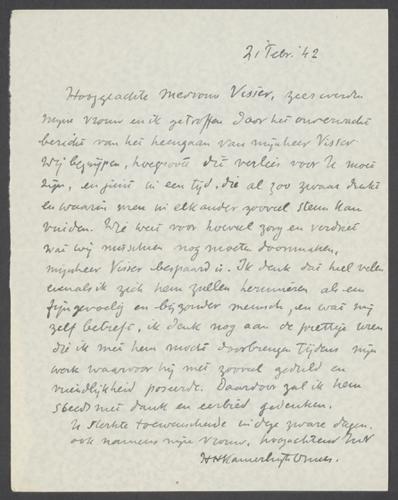 21 Febr. '42
Hooggeachte Mevrouw Visser, zeer werden
mijne vrouw en ik getroffen door het onverwacht
bericht van het heengaan van mijnheer Visser
Wij begrijpen, hoe groot dit verlies voor U moet
zijn, en juist in een tijd, die al zoo zwaar drukt
en waarin men in elkander zooveel steun kan
vinden. Wie weet voor hoeveel zorg en verdriet
wat wij misschien nog moeten doormaken,
mijnheer Visser bespaard is. Ik denk dat heel velen
evenals ik zich hem zullen herinneren als een
fijngevoelig en bijzonder mensch, en wat mij
zelf betreft, ik denk nog aan de prettige uren
die ik met hem mocht doorbrengen tijdens mijn
werk waarvoor hij met zooveel geduld en
vriendlijkheid poseerde. Daardoor zal ik hem
steeds met dank en eerbied gedenken.
U sterkte toewenschende in deze zware dagen.
ook namens mijne vrouw, hoogachtend
HHKamerlingh Onnes.